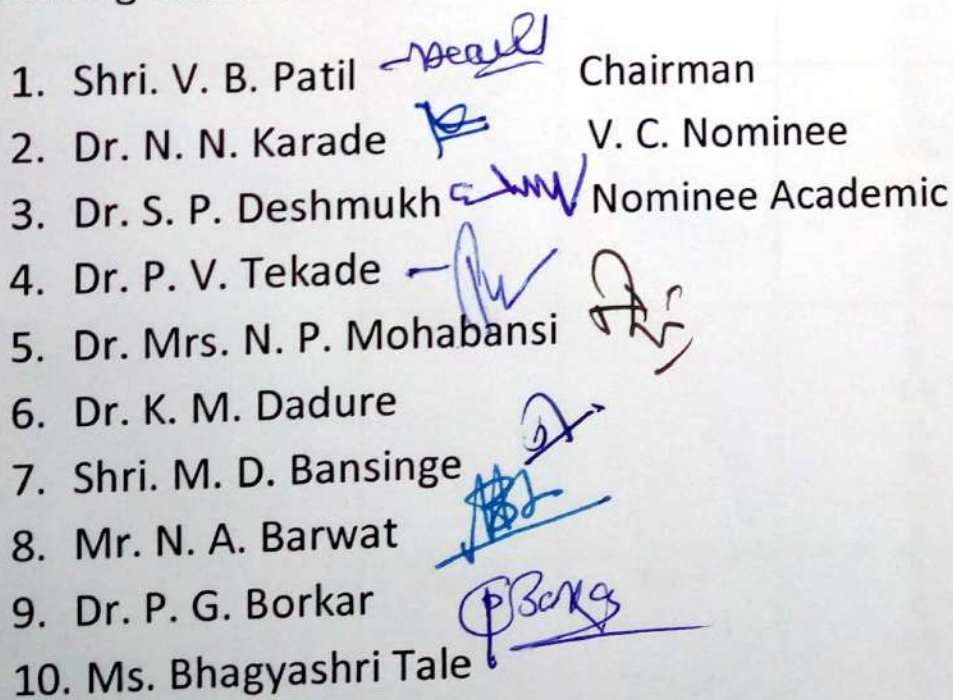 1. Shri. V. B. Patil Chairman
2. Dr. N. N. Karade V. C. Nominee
3. Dr. S. P. Deshmukh Nominee Academic
4. Dr. P. V. Tekade
5. Dr. Mrs. N. P. Mohabansi
6. Dr. K. M. Dadure
7. Shri. M. D. Bansinge
8. Mr. N. A. Barwat
9. Dr. P. G. Borkar
10. Ms. Bhagyashri Tale